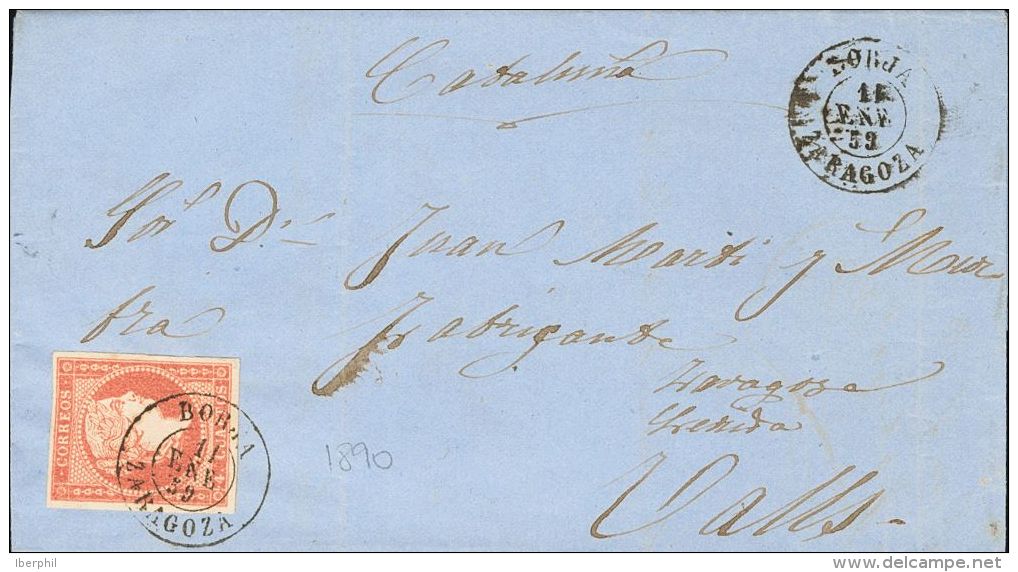 Cataluña
BORJA
11
ENE
59
ZARAGOZA
Sor. Dn. Juan Marti y Mun-
tra Fabricante
Zaragoza
Lerida
Valls.
CORREOS
BORJA
11
ENE
59
ZARAGOZA
1890
Iberphil
delcampe.net